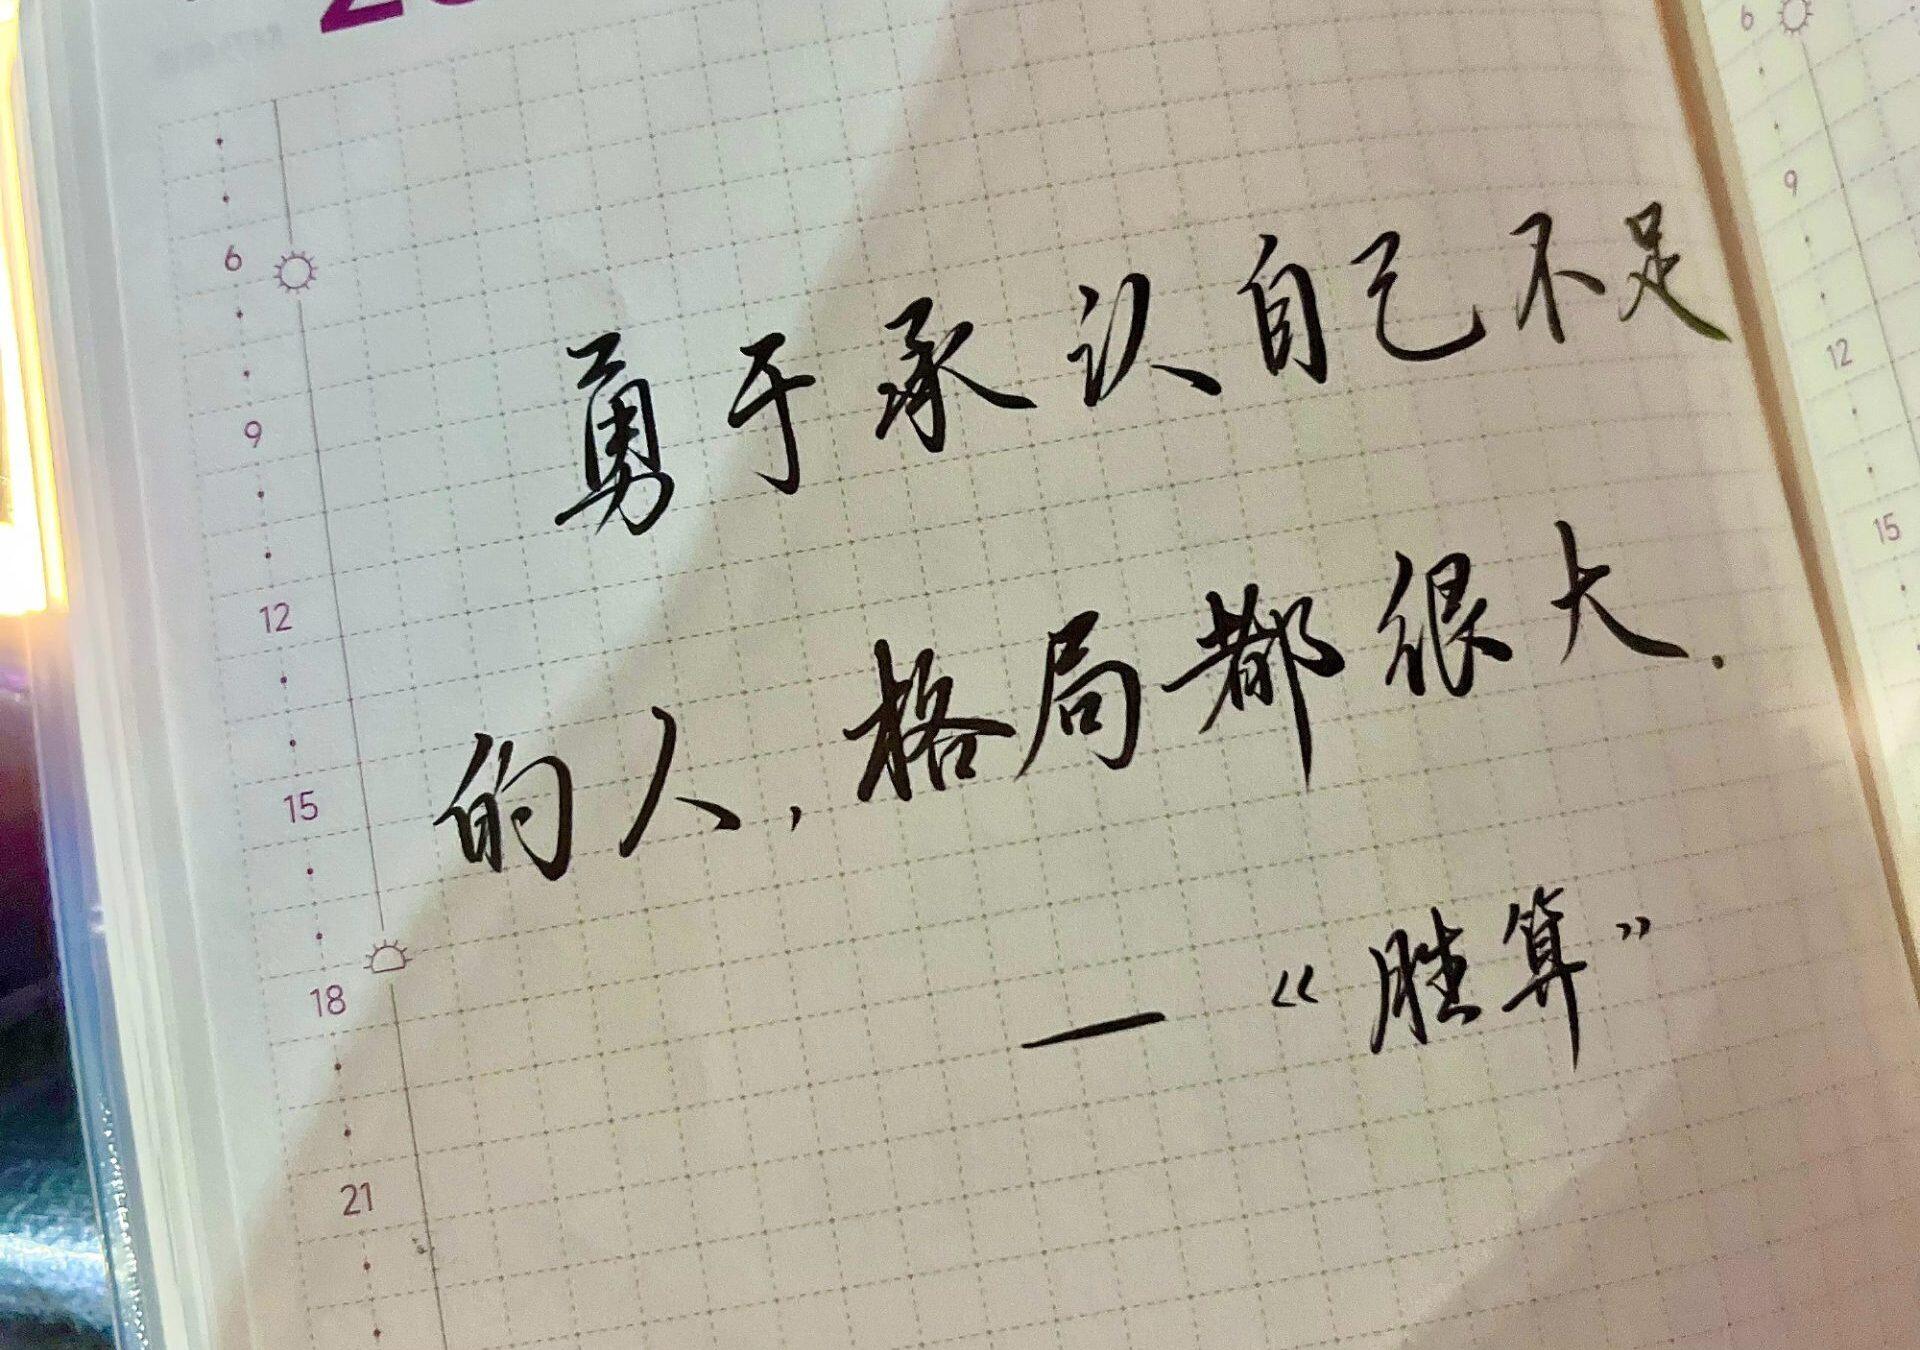 6
9
12
15
18
21
勇于承认自己不足
的人,格局都很大.
—“胜算”
6
9
12
15